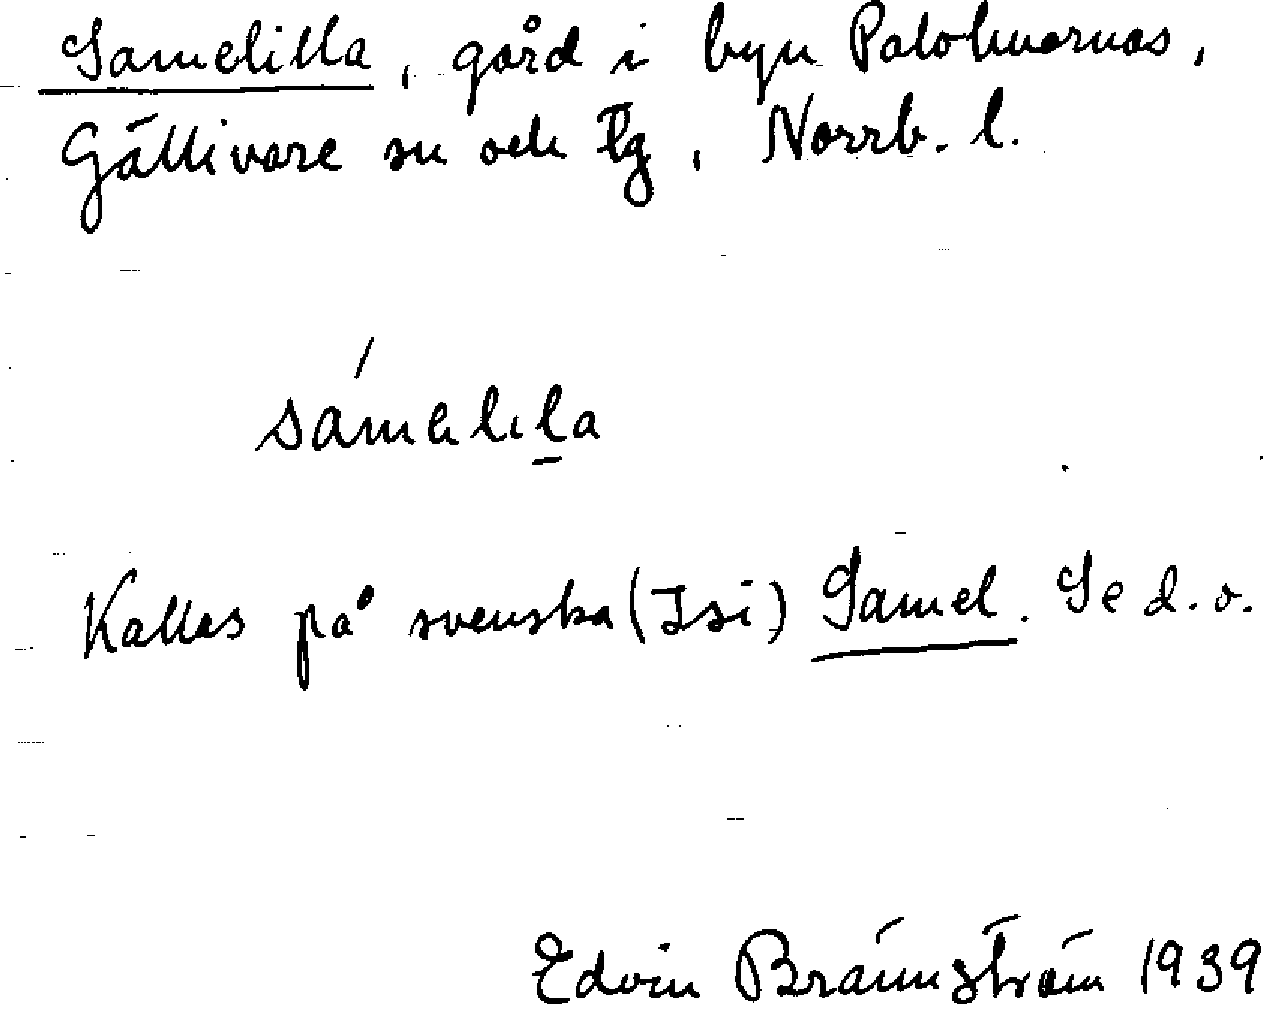 Samelilla, gård i byn Palohuornas,
Gällivare sn och tg, Norrb. l.
sámelila
Kallas på svenska (Isi) Samel. Se d. o.
Edvin Brännström 1939